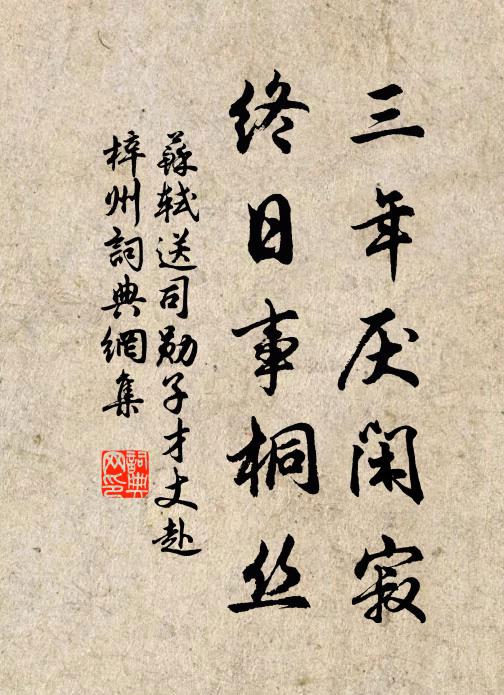 三年厌闲寂
终日事桐丝
蘇軾送司勋子才丈赴
梓州詞典網集
詞典网印